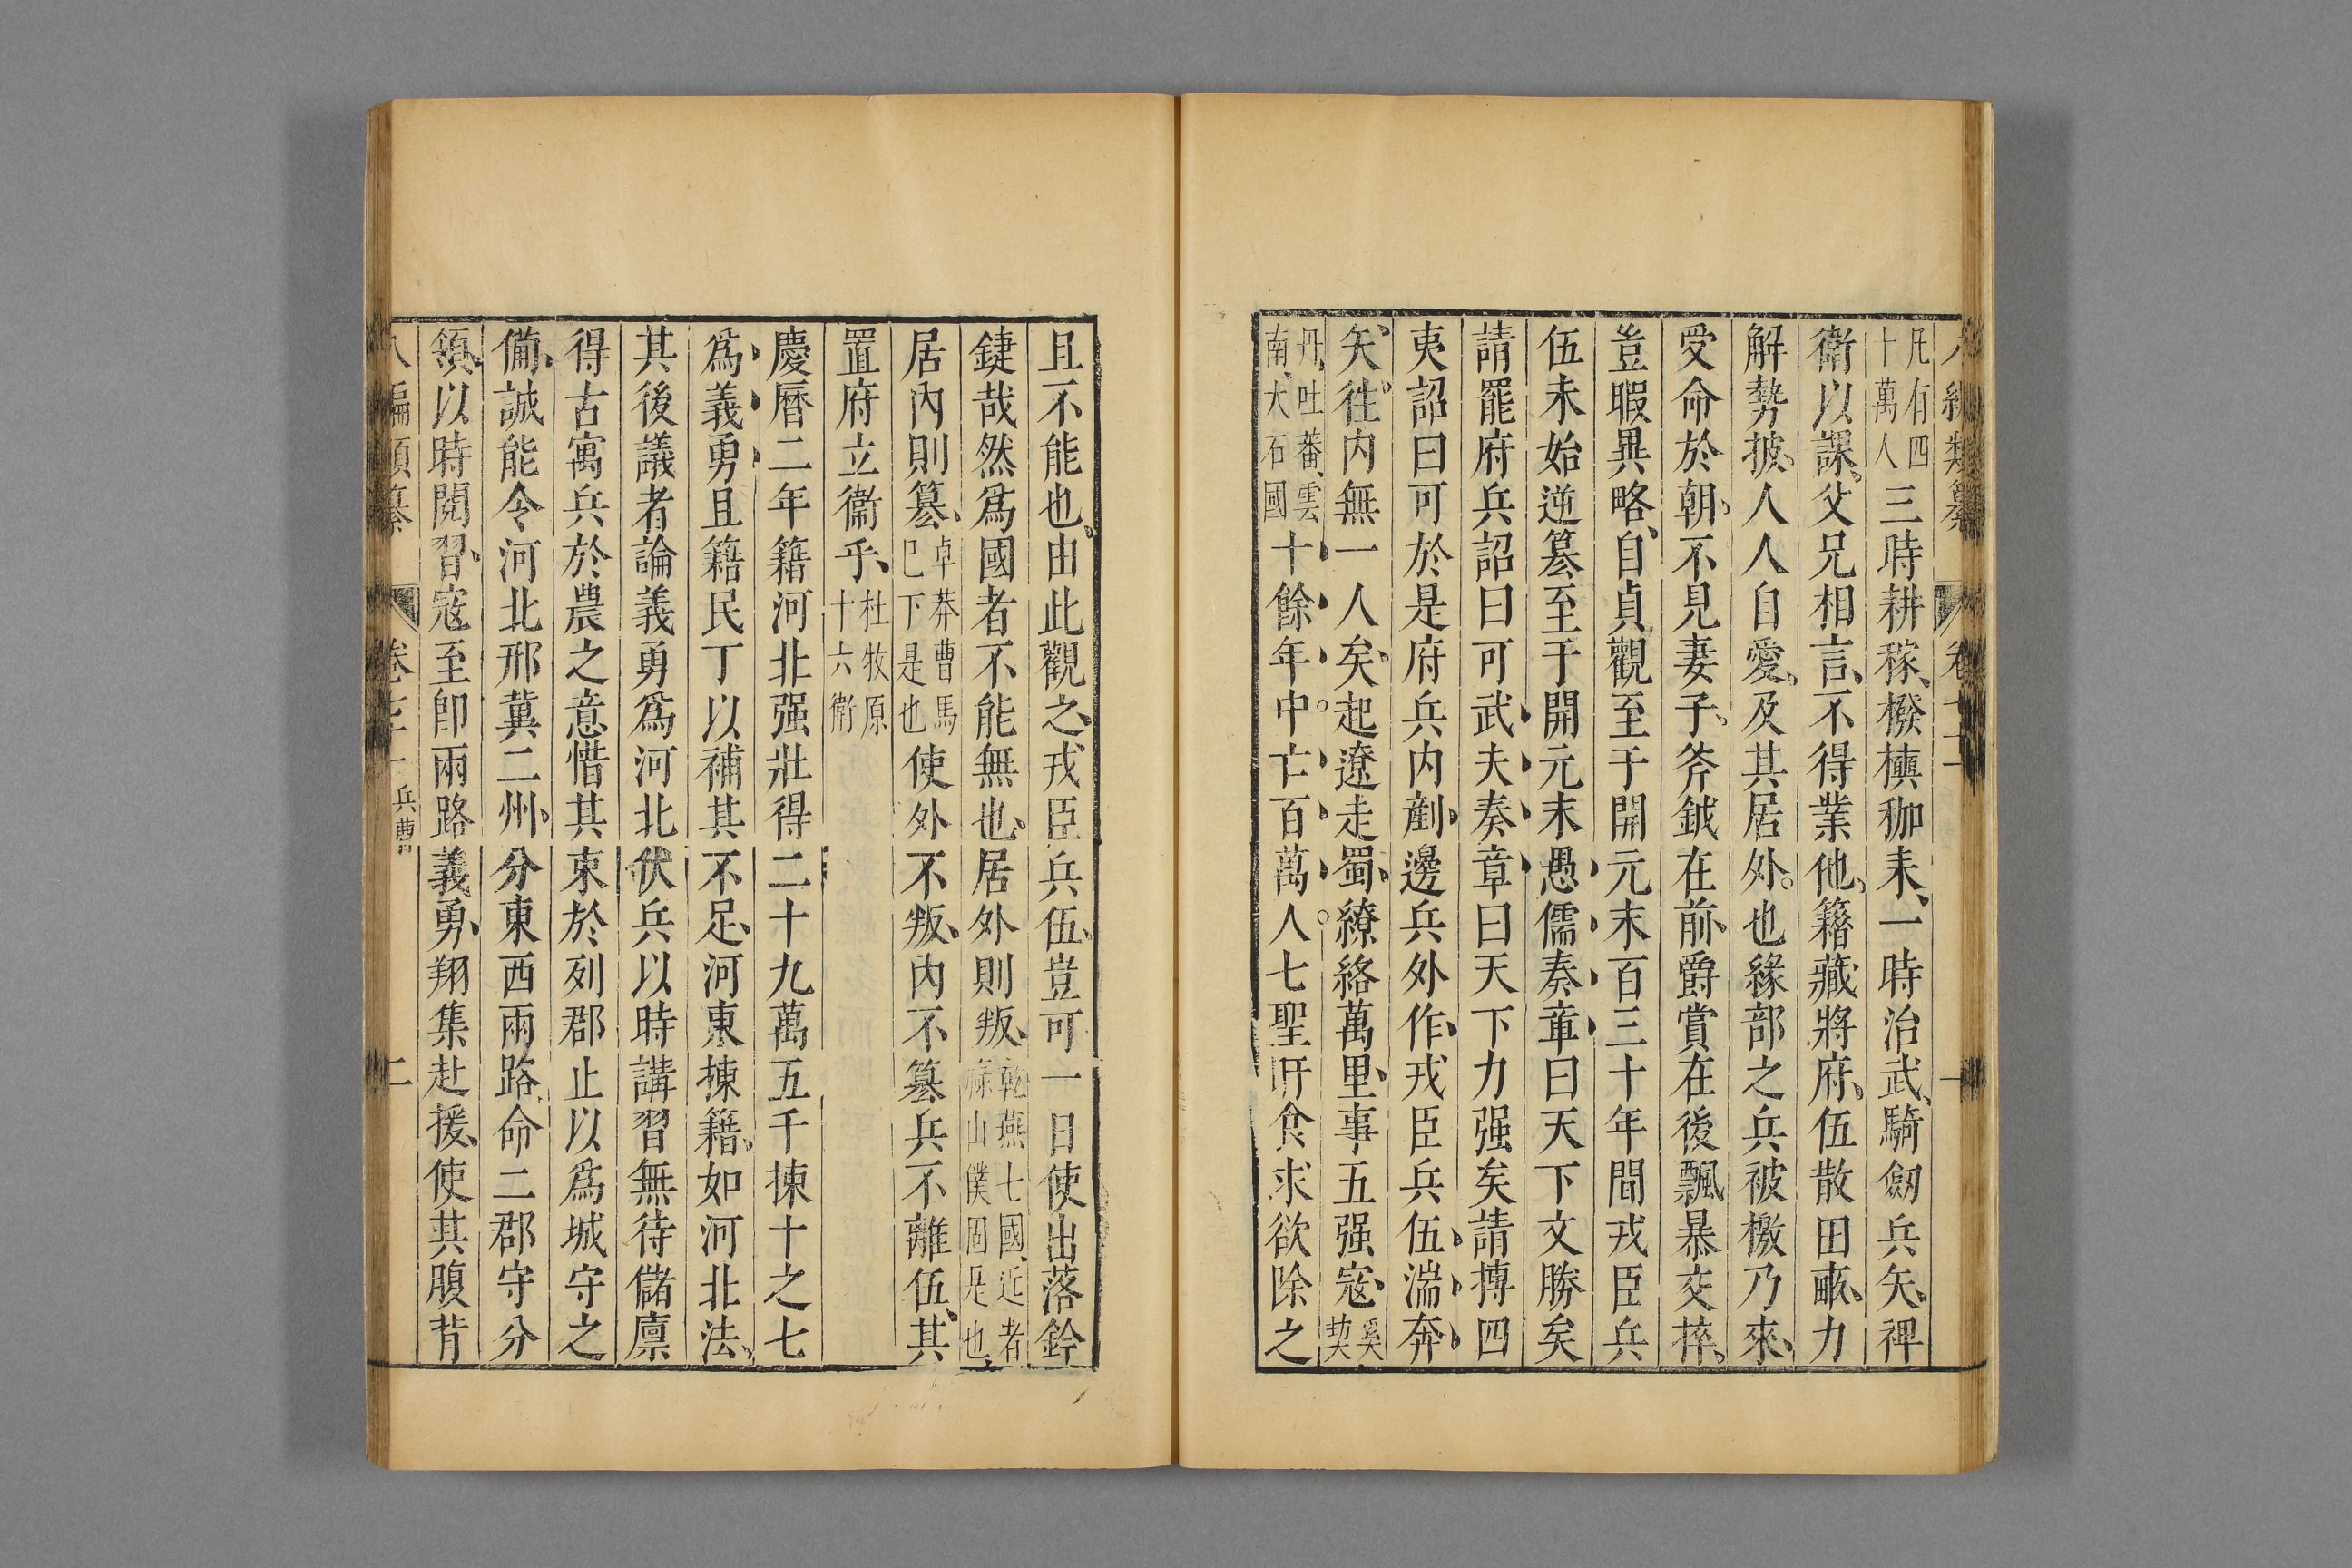 凡有四十萬人三時耕稼、襏襫耞耒、一時治武、騎劒兵矢、禆
衛以課、父兄相言、不得業他、籍藏將府、伍散田畝、力
解勢披、人人自愛、及其居外。也緣部之兵被檄乃來、
受命於朝、不見妻子、斧鉞在前、爵賞在後飄暴交捽、
豈暇異略、自貞觀至于開元末百三十年間戎臣兵
伍未始逆篡至于開元末愚儒奏章曰天下文勝矣
請罷府兵詔曰可武夫奏章曰天下力强矣請搏四
夷詔曰可於是府兵内剷、邊兵外作、戎臣兵伍、湍奔
矢徃。内無一人矣。起遼走蜀、繚絡萬里、事五强寇、奚契
丹、吐蕃、雲南、大石國十餘年中。亡百萬人。七聖旰食求欲除之
且不能也。由此觀之、戎臣兵伍、豈可一日使出落鈐
鍵哉然爲國者不能無也、居外則叛、乾燕七國、近者祿山僕固是也
居内則篡、卓莽曹馬已下是也使外不叛、内不篡、兵不離伍、其
置府立衞乎、杜牧原十六衛
慶曆二年籍河北强壯得二十九萬五千揀十之七
爲義勇且籍民丁以補其不足、河東揀籍、如河北法、
其後議者論義勇爲河北伏兵以時講習無待儲廪
得古寓兵於農之意惜其束於列郡止以爲城守之
備、誠能令河北邢冀二州、分東西兩路、命二郡守分
領、以時閱習、寇至卽兩路義勇、翔集赴援、使其腹背
八編類纂 卷 兵曹 二